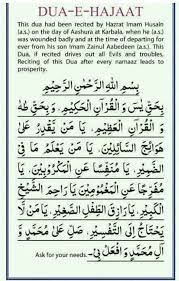 DUA-E-HAJAAT
This dua had been recited by Hazrat Imam Husain
(a.s.) on the day of Aashura at Karbala, when he (a.s.)
was wounded badly and at the time of departing for
ever from his son Imam Zainul Aabedeen (a.s.). This
Dua, if recited drives out all Evils and troubles.
Reciting of this Dua after every namaaz leads to
prosperity.
بِسْمِ اللهِ الرَّحْمٰنِ الرَّحِيْمِ
بِحَقِّ يٰسٓ وَ الْقُرْاٰنِ الْحَكِيْمِ، وَ بِحَقِّ طٰهٰ
وَ الْقُرْاٰنِ الْعَظِيْمِ، يَا مَنْ يَّقْدِرُ عَلٰى
حَوَآئِجِ السَّآئِلِيْنَ، يَا مَنْ يَّعْلَمُ مَا فِى
الضَّمِيْرِ، يَا مُنَفِّسًا عَنِ الْمَكْرُوْبِيْنَ، يَا
مُفَرِّجًا عَنِ الْمَغْمُوْمِيْنَ، يَا رَاحِمَ الشَّيْخِ
الْكَبِيْرِ، يَا رَازِقَ الطِّفْلِ الصَّغِيْرِ، يَا مَنْ لَّا
يَحْتَاجُ اِلَى التَّفْسِيْرِ، صَلِّ عَلٰى مُحَمَّدٍ وَّ
اٰلِ مُحَمَّدٍ وَ افْعَلْ بِىْ۔ Ask for your needs.